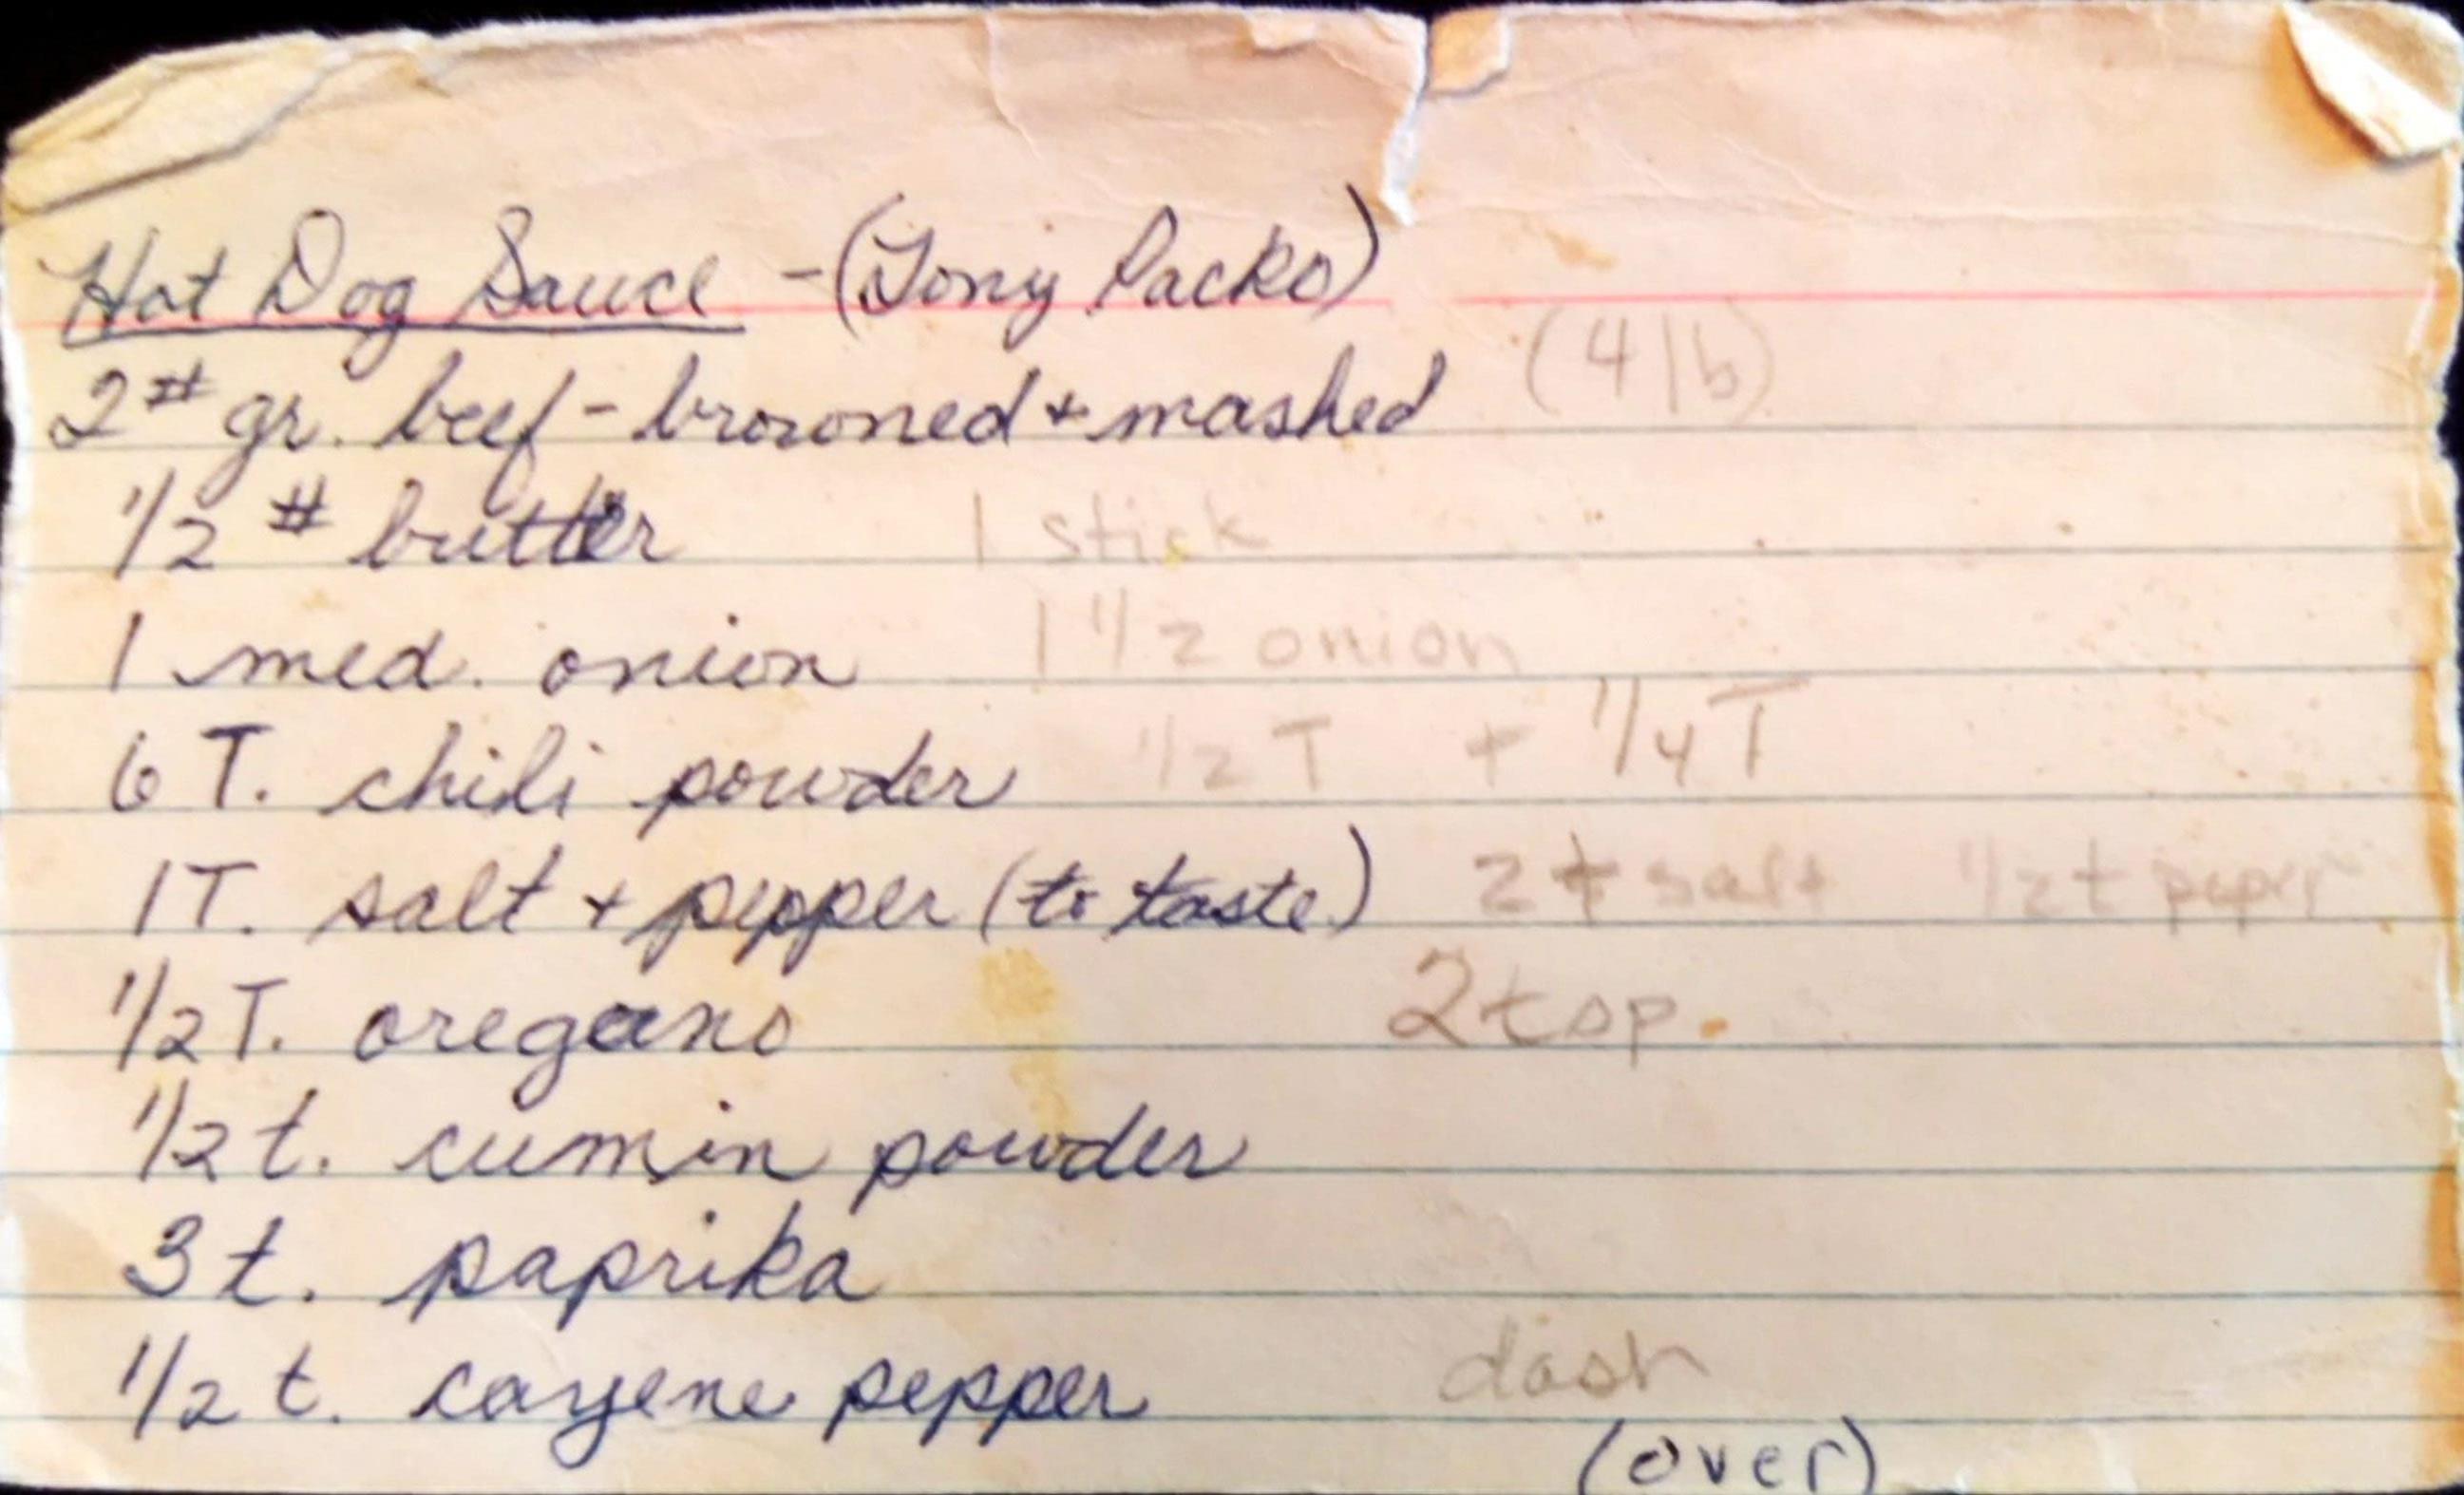 Hot Dog Sauce - (Tony Packo)
2# gr. beef - browned + mashed (4 lb)
1/2 # butter 1 stick
1 med. onion 1 1/2 onion
6 T. chili powder 1/2 T + 1/4 T
1 T. salt + pepper (to taste) 2 t salt 1/2 t peper
1/2 T. oregano 2 tsp.
1/2 t. cumin powder
3 t. paprika
1/2 t. cayene pepper dash
(over)